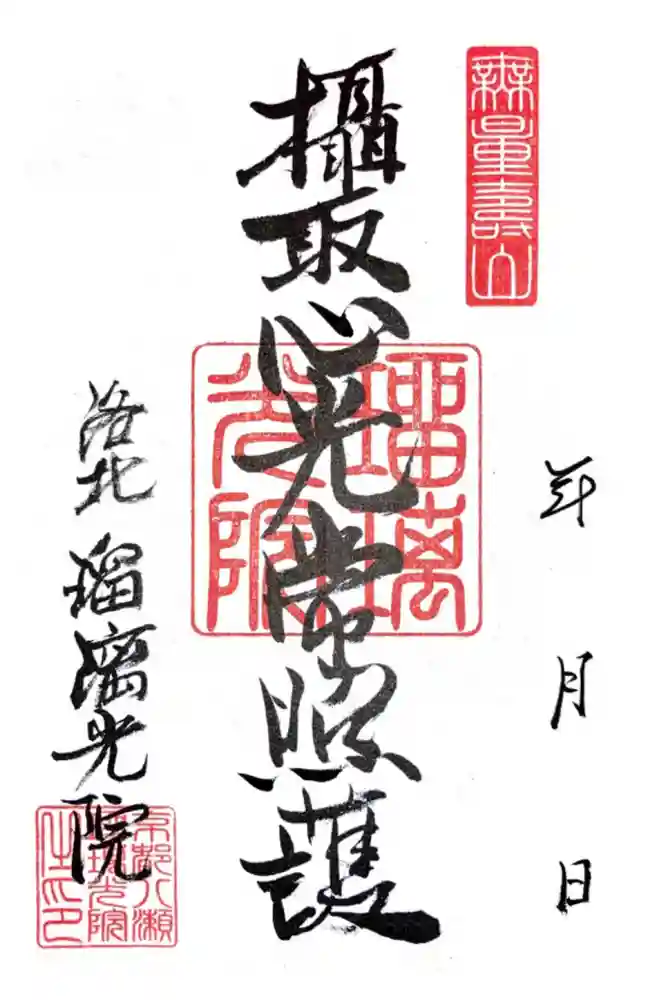 無量壽山
年 月 日
攝取心光常照護
瑠璃光院
洛北 瑠璃光院
京都八瀬
瑠璃光院
之印